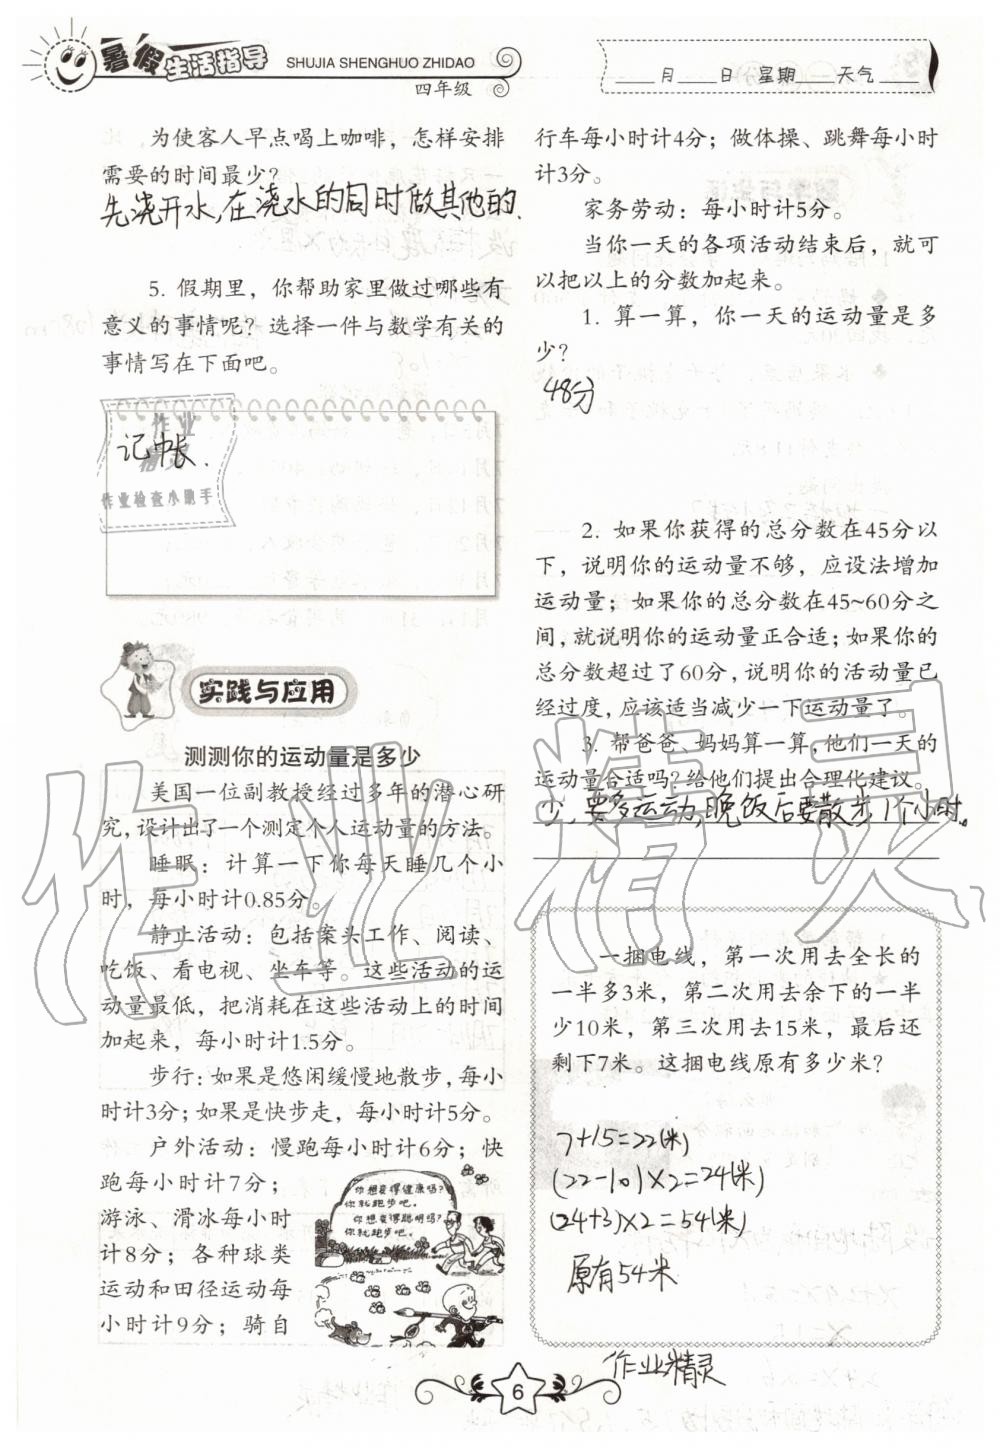 暑假生活指导
SHUJIA SHENGHUO ZHIDAO
四年级
月 日 星期 天气
为使客人早点喝上咖啡，怎样安排
需要的时间最少？
先浇开水,在浇水的同时做其他的.
5. 假期里，你帮助家里做过哪些有
意义的事情呢？选择一件与数学有关的
事情写在下面吧。
作业
精灵
作业检查小助手
记帐.
实践与应用
测测你的运动量是多少
美国一位副教授经过多年的潜心研
究,设计出了一个测定个人运动量的方法。
睡眠：计算一下你每天睡几个小
时，每小时计0.85分。
静止活动：包括案头工作、阅读、
吃饭、看电视、坐车等。这些活动的运
动量最低，把消耗在这些活动上的时间
加起来，每小时计1.5分。
步行：如果是悠闲缓慢地散步，每小
时计3分；如果是快步走，每小时计5分。
户外活动：慢跑每小时计6分；快
跑每小时计7分；
游泳、滑冰每小时
计8分；各种球类
运动和田径运动每
小时计9分；骑自
你想变得健康吗？
你就跑步吧。
你想变得聪明吗？
你就跑步吧。
行车每小时计4分；做体操、跳舞每小时
计3分。
家务劳动：每小时计5分。
当你一天的各项活动结束后，就可
以把以上的分数加起来。
1. 算一算，你一天的运动量是多
少？
48分
2. 如果你获得的总分数在45分以
下，说明你的运动量不够，应设法增加
运动量；如果你的总分数在45~60分之
间，就说明你的运动量正合适；如果你的
总分数超过了60分，说明你的活动量已
经过度，应该适当减少一下运动量了。
3. 帮爸爸、妈妈算一算，他们一天的
运动量合适吗？给他们提出合理化建议。
少，要多运动,晚饭后要散步1个小时。
一捆电线，第一次用去全长的
一半多3米，第二次用去余下的一半
少10米，第三次用去15米，最后还
剩下7米。这捆电线原有多少米？
7+15=22(米)
(22-10)×2=24(米)
(24+3)×2=54(米)
原有54米
作业精灵
6
作业精灵